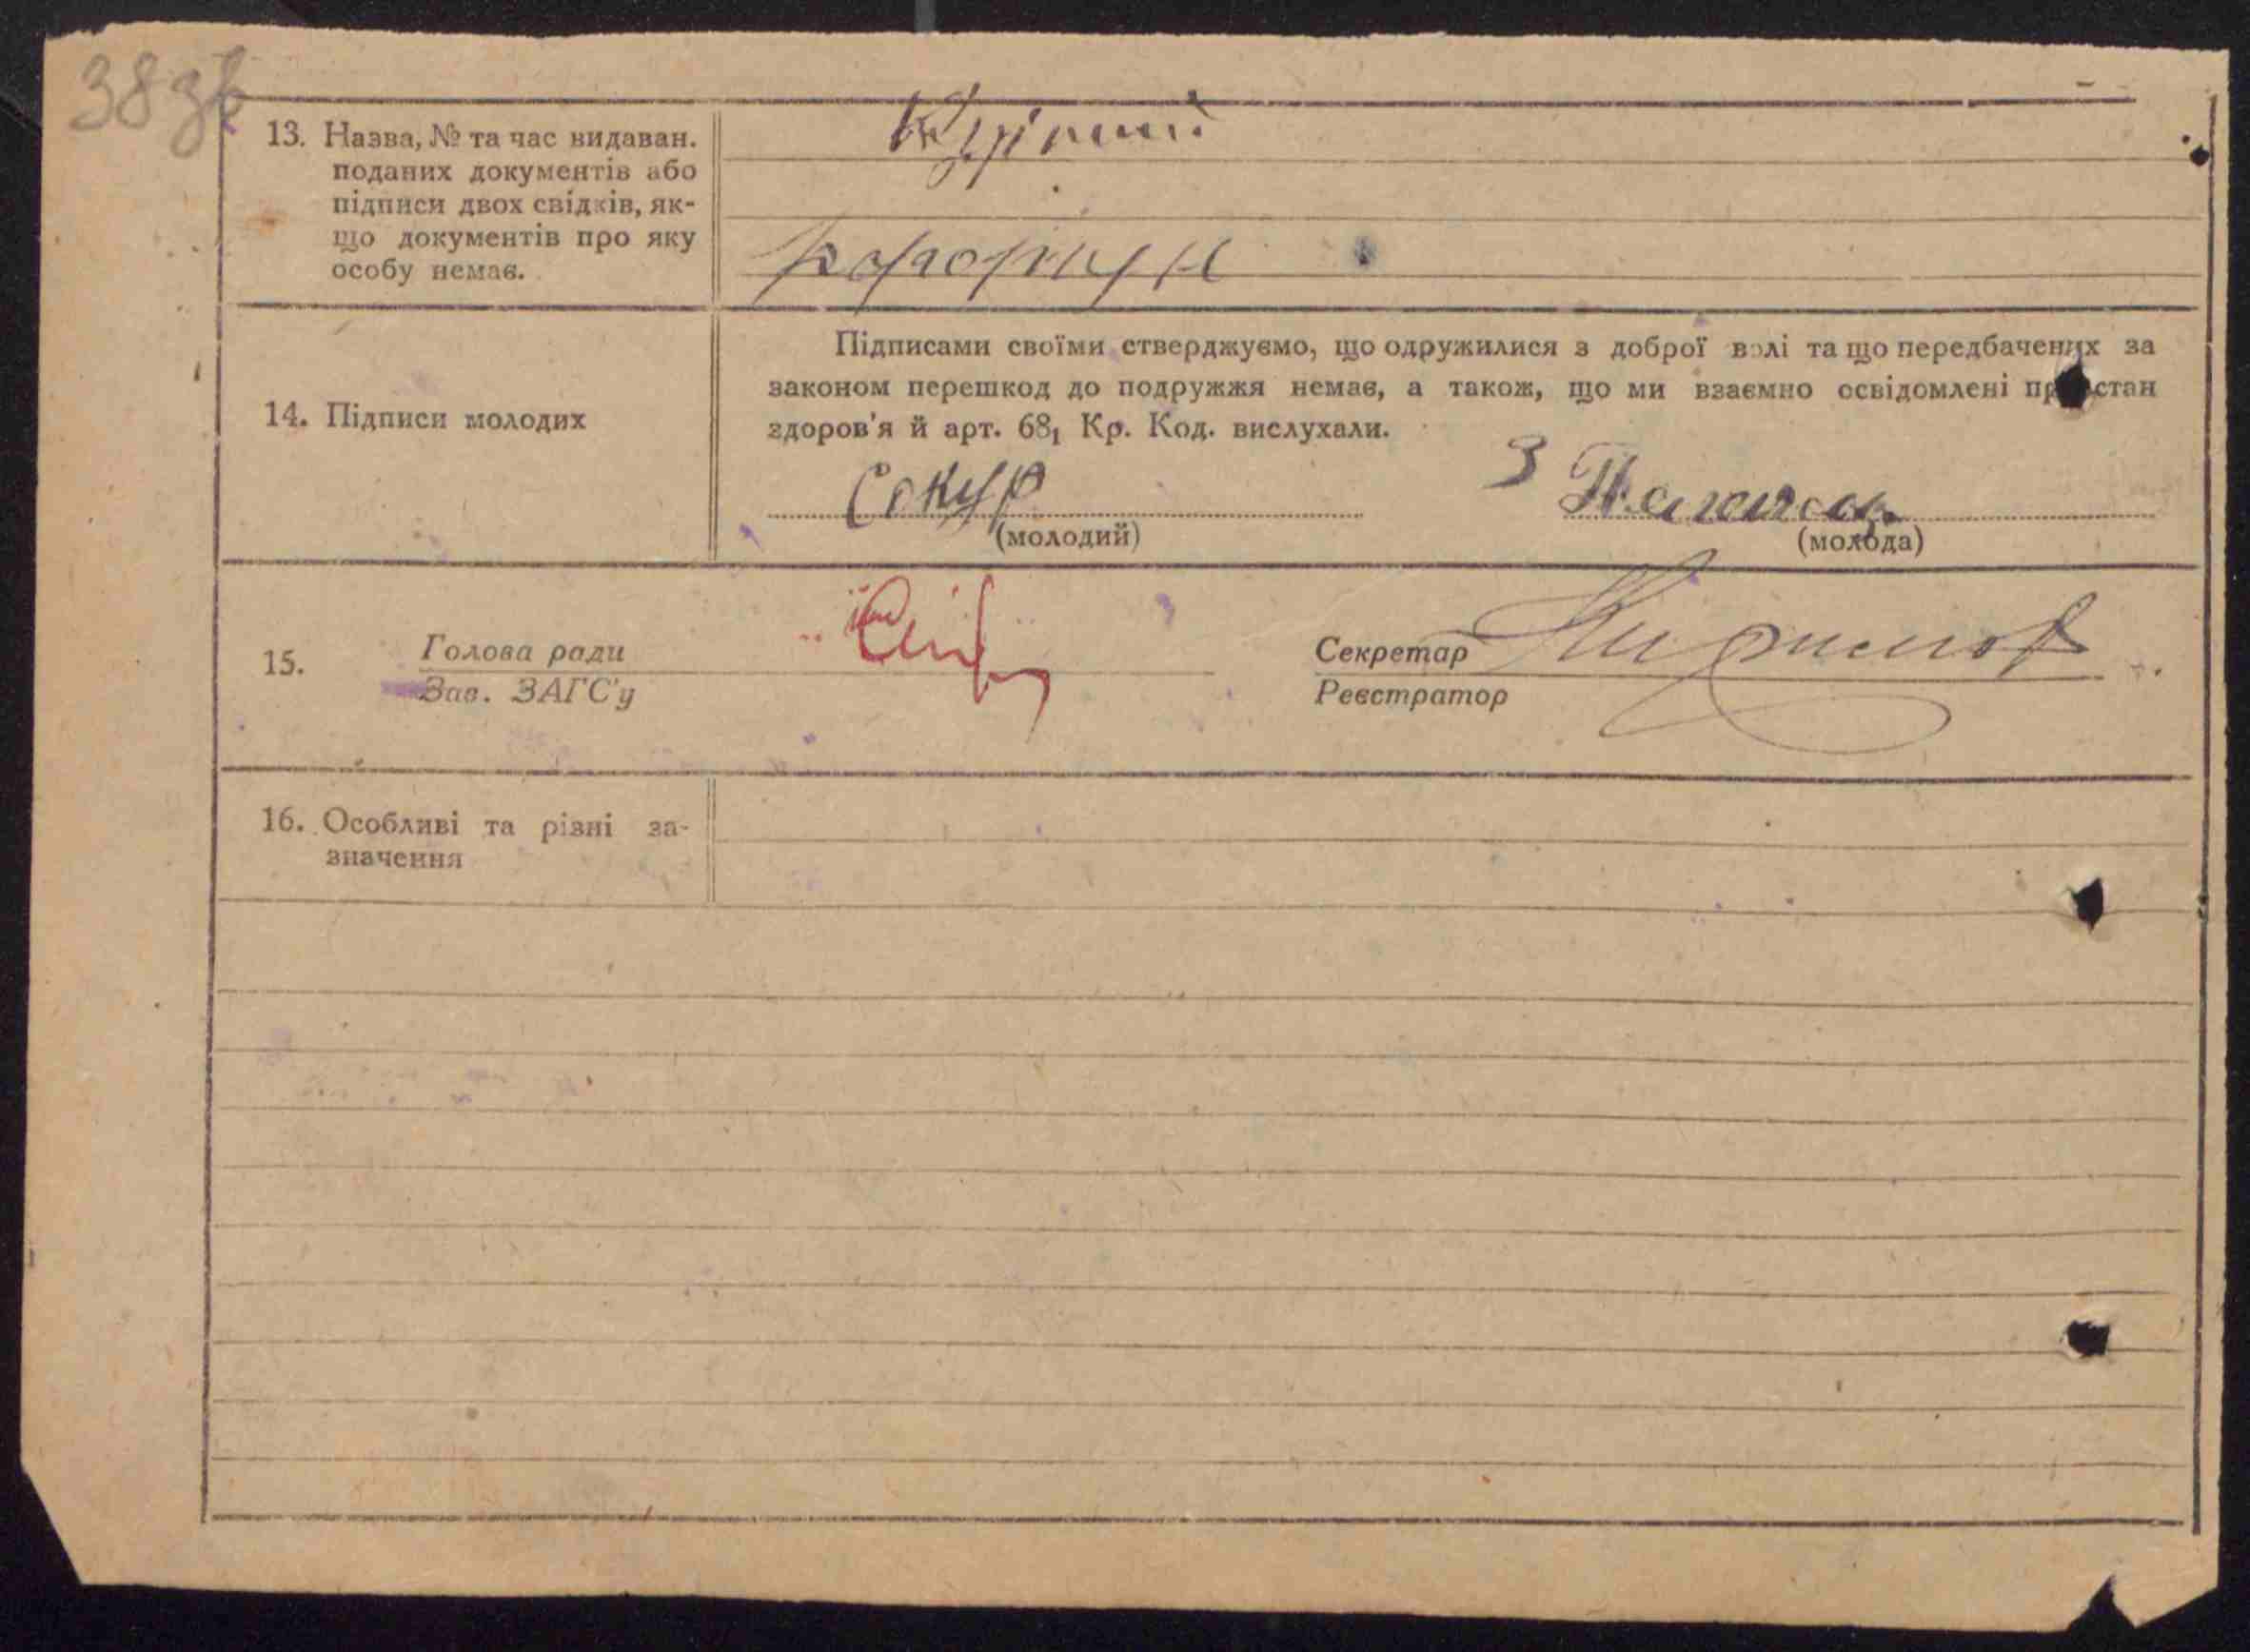 38 зв
13. Назва, № та час видаван.
поданих документів або
підписи двох свідків, як-
що документів про яку
особу немає.
14. Підписи молодих
Підписами своїми стверджуємо, що одружилися з доброї волі та що передбачених за
законом перешкод до подружжя немає, а також, що ми взаємно освідомлені про стан
здоров'я й арт. 68₁ Кр. Код. вислухали.
Сокур
(молодий)
(молода)
15.
Голова ради
Зав. ЗАГС'у
Секретар
Реєстратор
16. Особливі та різні за-
значення